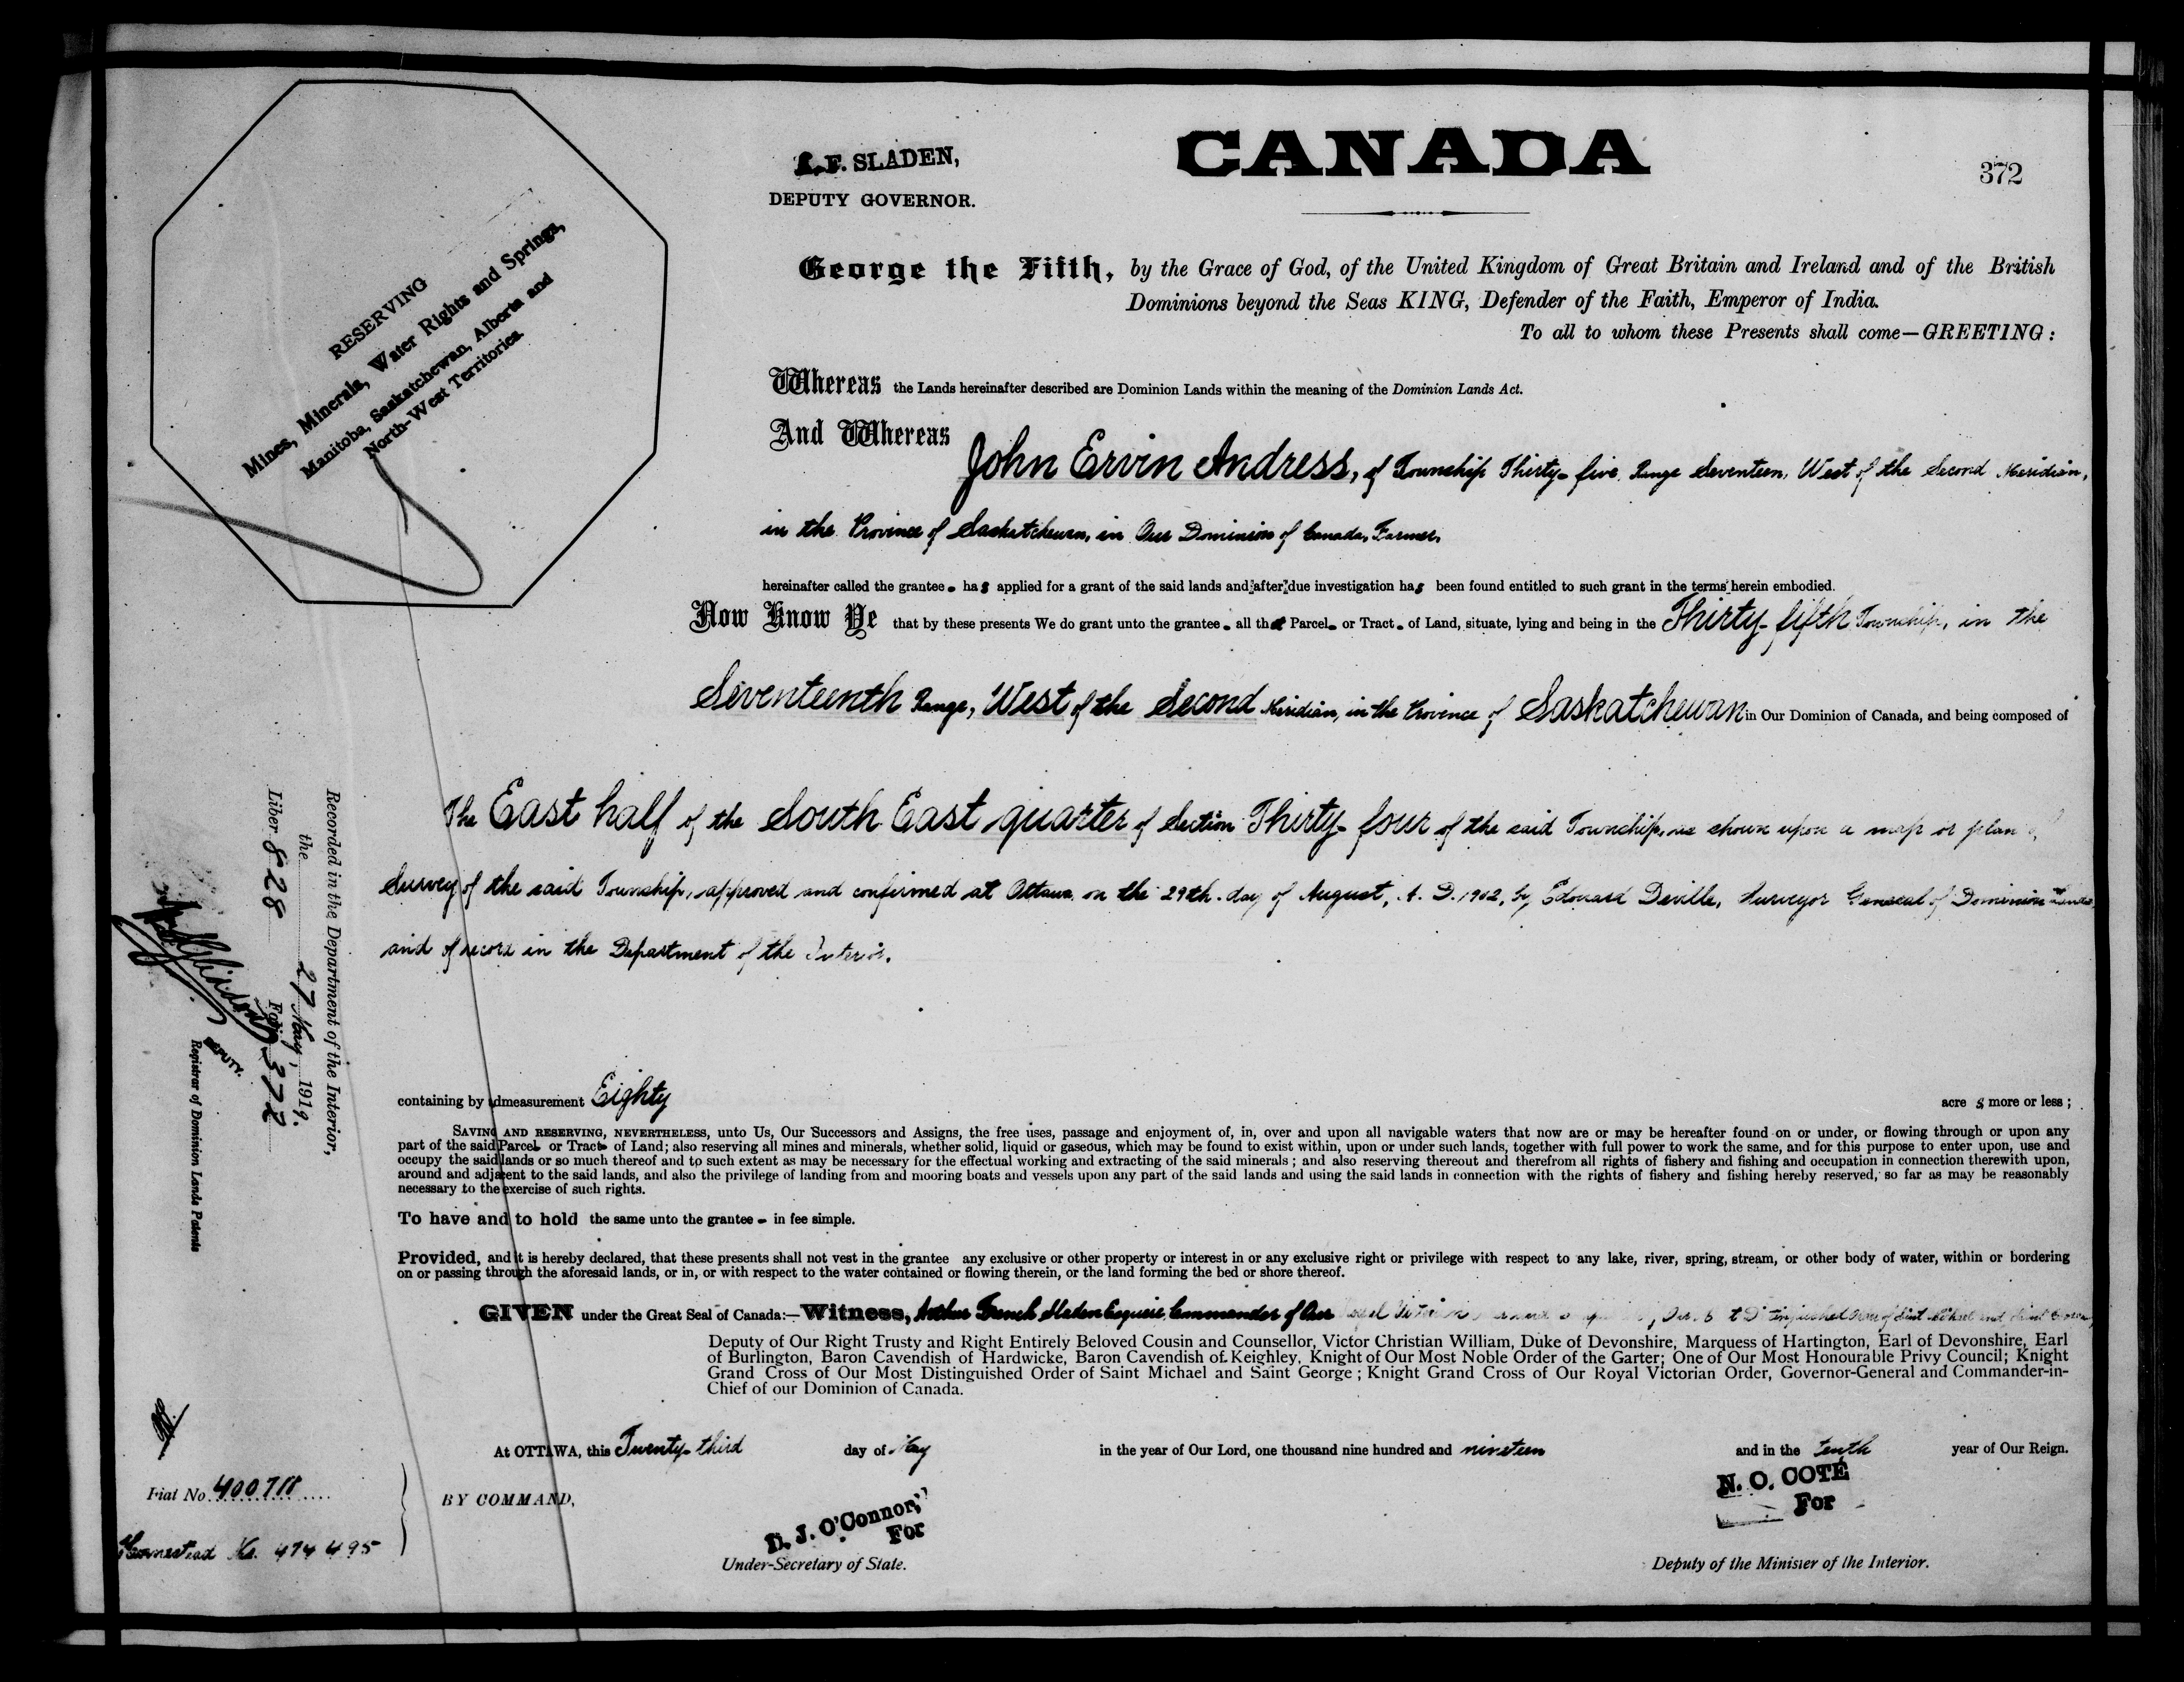 A. F. SLADEN,
DEPUTY GOVERNOR.
CANADA
372
RESERVING
Mines, Minerals, Water Rights and Springs,
Manitoba, Saskatchewan, Alberta and
North-West Territories.
George the Fifth, by the Grace of God, of the United Kingdom of Great Britain and Ireland and of the British
Dominions beyond the Seas KING, Defender of the Faith, Emperor of India.
To all to whom these Presents shall come—GREETING:
Whereas the Lands hereinafter described are Dominion Lands within the meaning of the Dominion Lands Act.
And Whereas
John Ervin Andress, of Township Thirty-five, Range Seventeen, West of the Second Meridian,
in the Province of Saskatchewan, in Our Dominion of Canada, Farmer,
hereinafter called the grantee - has applied for a grant of the said lands and after due investigation has been found entitled to such grant in the terms herein embodied.
Now Know Ye that by these presents We do grant unto the grantee - all that Parcel - or Tract - of Land, situate, lying and being in the Thirty-fifth Township, in the
Seventeenth Range, West of the Second Meridian, in the Province of Saskatchewan in Our Dominion of Canada, and being composed of
The East half of the South East quarter of Section Thirty-four of the said Township, as shown upon a map or plan of
Survey of the said Township, approved and confirmed at Ottawa on the 29th. day of August, A. D. 1902, by Edouard Deville, Surveyor General of Dominion Lands
and of record in the Department of the Interior.
Recorded in the Department of the Interior,
the 27 May, 1919.
Liber 828 Folio 372
DEPUTY.
Registrar of Dominion Lands Patents
containing by admeasurement Eighty acre s more or less;
SAVING AND RESERVING, NEVERTHELESS, unto Us, Our Successors and Assigns, the free uses, passage and enjoyment of, in, over and upon all navigable waters that now are or may be hereafter found on or under, or flowing through or upon any
part of the said Parcel - or Tract - of Land; also reserving all mines and minerals, whether solid, liquid or gaseous, which may be found to exist within, upon or under such lands, together with full power to work the same, and for this purpose to enter upon, use and
occupy the said lands or so much thereof and to such extent as may be necessary for the effectual working and extracting of the said minerals; and also reserving thereout and therefrom all rights of fishery and fishing and occupation in connection therewith upon,
around and adjacent to the said lands, and also the privilege of landing from and mooring boats and vessels upon any part of the said lands and using the said lands in connection with the rights of fishery and fishing hereby reserved, so far as may be reasonably
necessary to the exercise of such rights.
To have and to hold the same unto the grantee - in fee simple.
Provided, and it is hereby declared, that these presents shall not vest in the grantee any exclusive or other property or interest in or any exclusive right or privilege with respect to any lake, river, spring, stream, or other body of water, within or bordering
on or passing through the aforesaid lands, or in, or with respect to the water contained or flowing therein, or the land forming the bed or shore thereof.
GIVEN under the Great Seal of Canada:—Witness, Arthur French Sladen Esquire, Commander of Our Royal Victorian Distinguished Order of Saint Michael and Saint George,
Deputy of Our Right Trusty and Right Entirely Beloved Cousin and Counsellor, Victor Christian William, Duke of Devonshire, Marquess of Hartington, Earl of Devonshire, Earl
of Burlington, Baron Cavendish of Hardwicke, Baron Cavendish of Keighley, Knight of Our Most Noble Order of the Garter; One of Our Most Honourable Privy Council; Knight
Grand Cross of Our Most Distinguished Order of Saint Michael and Saint George; Knight Grand Cross of Our Royal Victorian Order, Governor-General and Commander-in-
Chief of our Dominion of Canada.
At OTTAWA, this Twenty-third day of May in the year of Our Lord, one thousand nine hundred and nineteen and in the tenth year of Our Reign.
Fiat No. 400711
Homestead No. 474495
BY COMMAND,
D. J. O'Connor,
For
Under-Secretary of State.
N. O. COTÉ
For
Deputy of the Minister of the Interior.